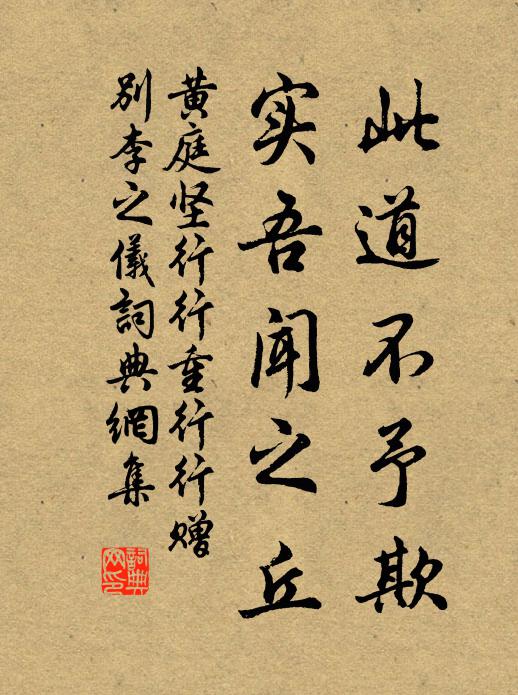 此道不予欺
实吾闻之丘
黄庭坚行行重行行赠
别李之儀詞典網集
詞典
网印